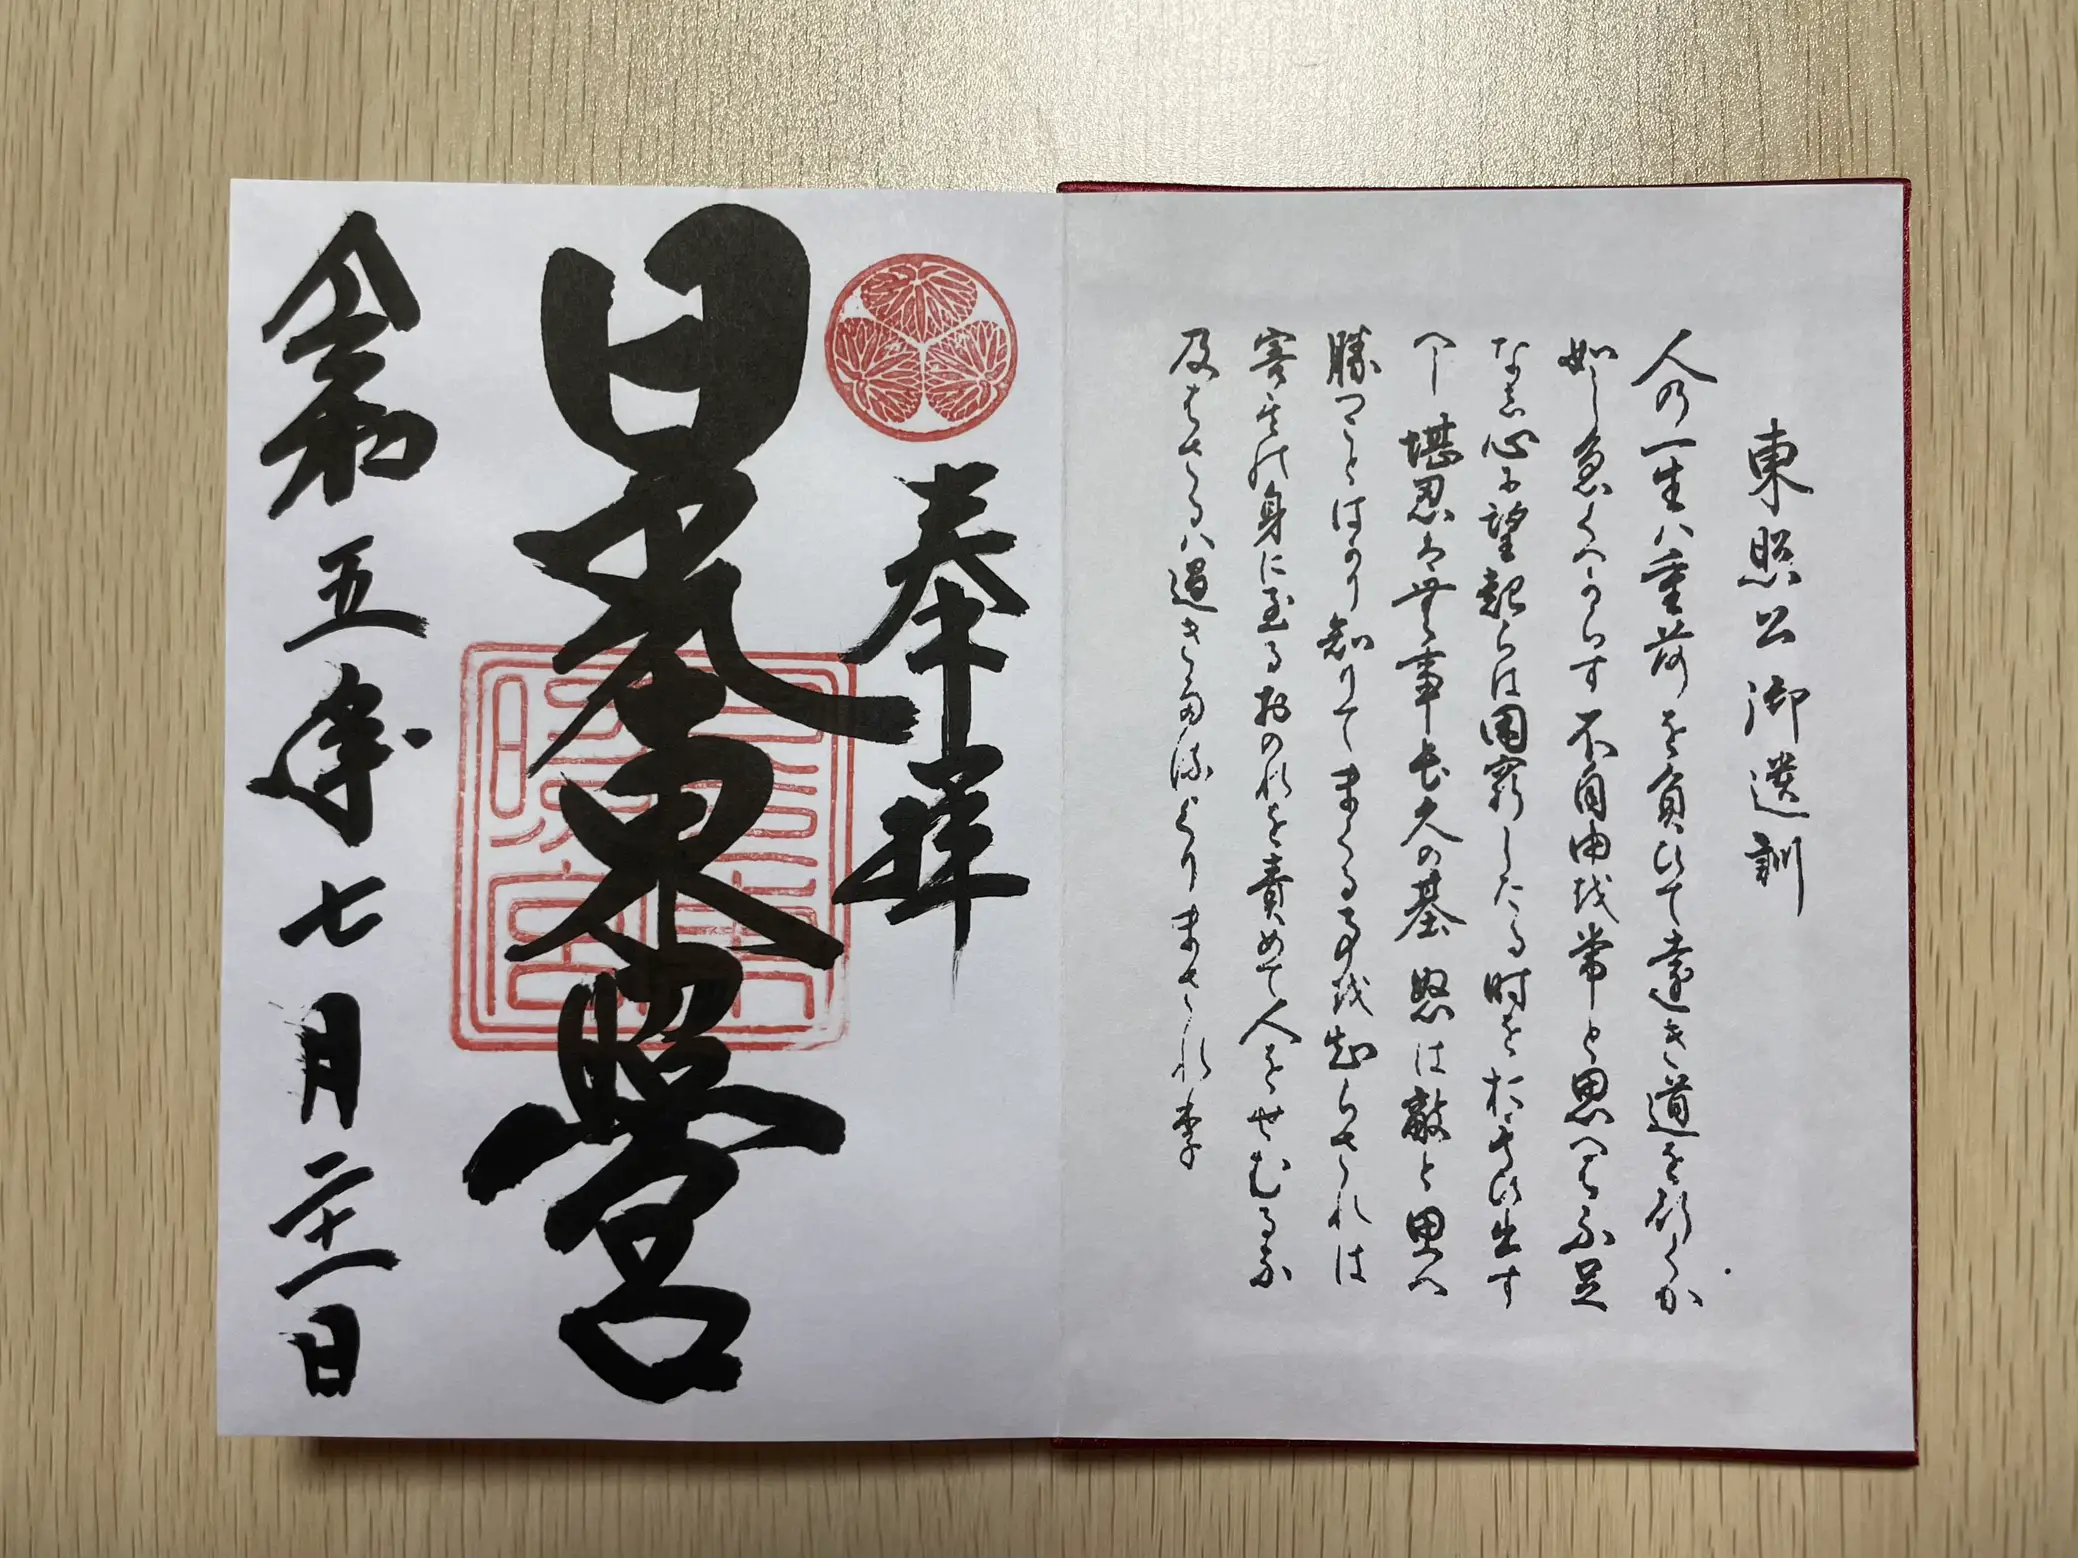 東照公御遺訓
人の一生ハ重荷を負ひて遠き道を行くか
如し急くへからす不自由を常と思へハ不足
なし心に望起らは困窮したる時を思ひ出す
へし堪忍は無事長久の基怒は敵と思へ
勝つことはかり知りてまくる事を知らされは
害其の身に至るおのれを責めて人をせむるな
及はさるハ過きたるよりまされり
奉拝
日光東照宮
令和五年七月二十一日